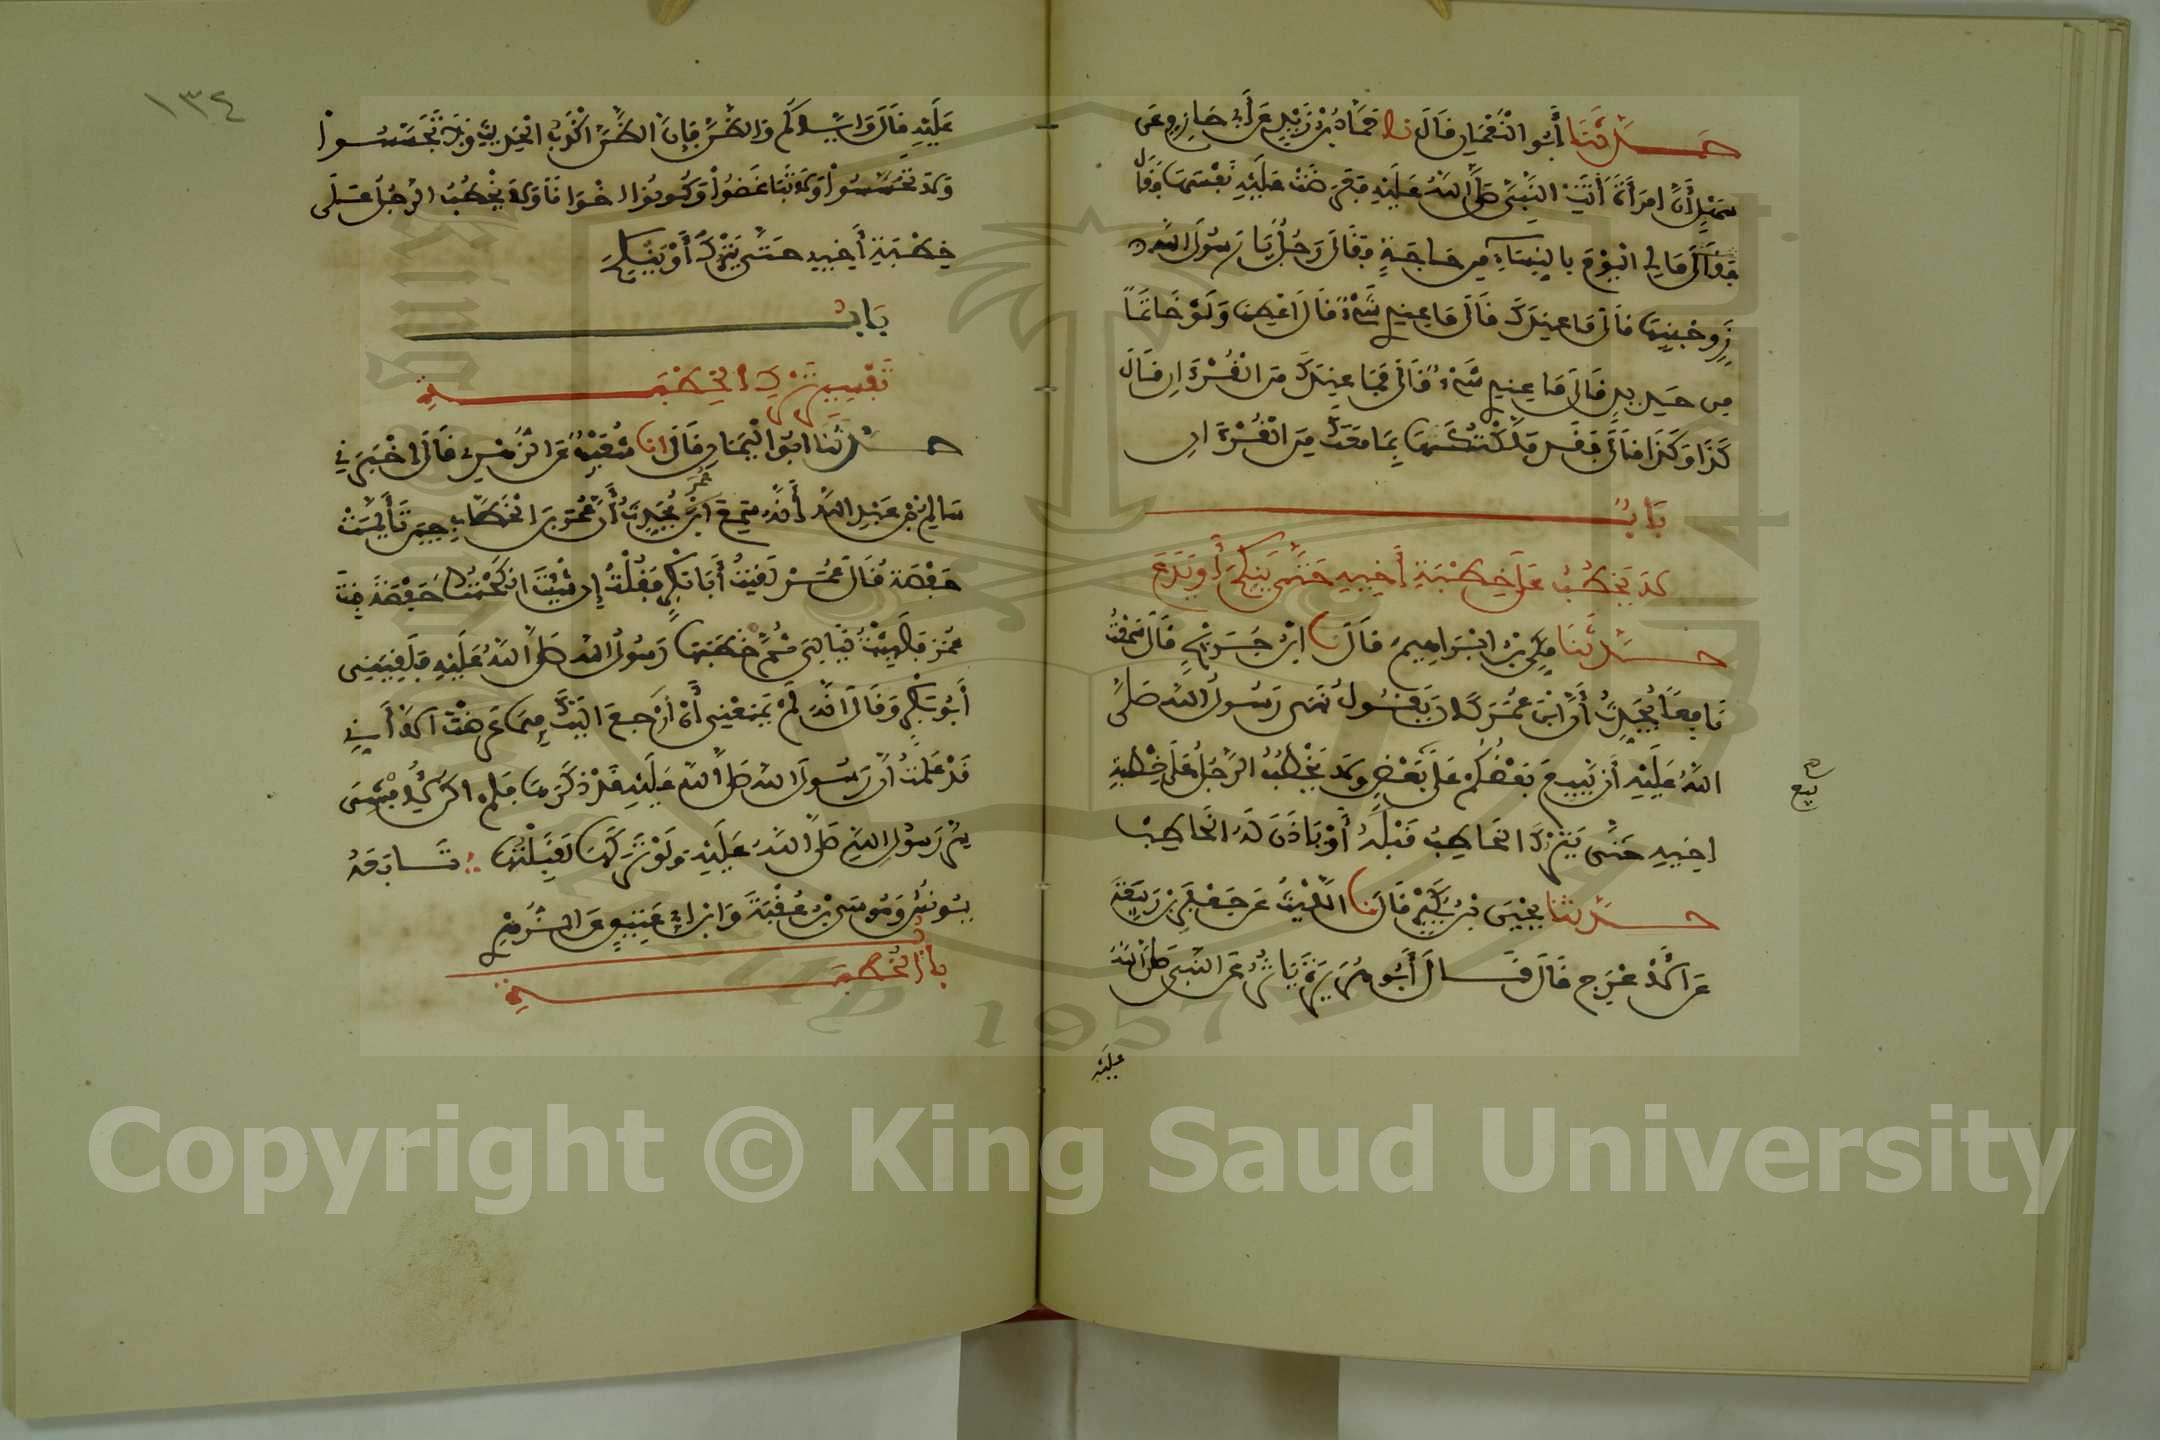 حدثنا أبو النعمان قال نا حماد بن زيد عن أبي حازم عن
سهل أن امرأة أتت النبي صلى الله عليه فعرضت عليه نفسها فقال
فقال ما لي اليوم بالنساء من حاجة فقال رجل يا رسول الله
زوجنيها قال ما عندك قال ما عندي شيء قال أعطها ولو خاتما
من حديد قال ما عندي شيء قال فما عندك من القرءان قال
كذا وكذا قال فقد ملكتكها بما معك من القرءان
باب
لا يخطب على خطبة أخيه حتى ينكح أو يدع
حدثنا مكي بن ابراهيم قال نا ابن جريج قال سمعت
نافعا يحدث أن ابن عمر كان يقول نهى رسول الله صلى
الله عليه أن يبيع بعضكم على بعض ولا يخطب الرجل على خطبة
بيع
اخيه حتى يترك الخاطب قبله أو ياذن له الخاطب
حدثنا يحيى بن بكير قال نا الليث عن جعفر بن ربيعة
عن الأعرج قال قال أبو هريرة ياثر عن النبي صلى الله
عليه
١٣٤
عليه قال اياكم والظن فإن الظن اكذب الحديث ولا تجسسوا
ولا تحسسوا ولا تباغضوا وكونوا اخوانا ولا يخطب الرجل على
خطبة أخيه حتى يترك أو ينكح
باب
تفسير ترك الخطبة
حدثنا ابو اليمان قال انا شعيب عن الزهري قال اخبرني
سالم بن عبد الله أنه سمع ابن عمر يحدث أن عمر بن الخطاب حين تأيمت
حفصة قال عمر لقيت أبا بكر فقلت إن شئت انكحتك حفصة بنت
عمر فلبثت ليالي ثم خطبها رسول الله صلى الله عليه فلقيني
أبو بكر وقال انه لم يمنعني أن أرجع اليك مما عرضت الا أني
قد علمت أن رسول الله صلى الله عليه قد ذكرها فلم اكن لأفشي
سر رسول الله صلى الله عليه ولو تركها لقبلتها تابعه
يونس وموسى بن عقبة وابن أبي عتيق عن الزهري
باب الخطبة
Copyright © King Saud University
1957